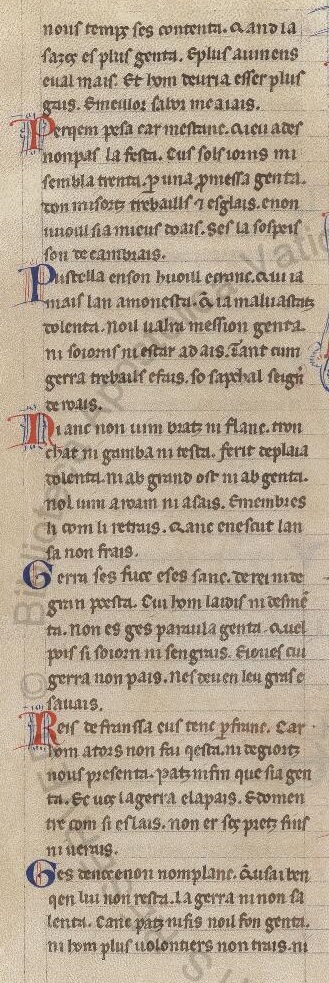 nous temps ses contenta. Qand la
sazos es plus genta. E plus auinens
e ual mais. Et hom deuria esser plus
gais. E meillor sabor me aiais.
Per qem pesa car mestanc. Qieu ades
non pas la festa. Cus sols iorns mi
sembla trenta. p una pmessa genta.
don mi sortz trebaills ⁊ esglais. e non
uuoill sia mieus doais. Ses la sospeis
son de cambrais.
Pustella en son huoill e cranc. Qui ia
mais lan amonesta. Q ia maluastatz
dolenta. noil ualra mession genta.
ni soiorns ni estar ad ais. Tant cum
gerra trebaills e fais. so sapchal seign
de roais.
Ri anc non uim bratz ni flanc. tron
chat ni gamba ni testa. ferit de plaia
dolenta. ni ab grand ost ni ab genta.
nol uim a roam ni asais. E membres
li com li retrais. Qanc en escut lan
sa non frais.
Gerra ses fuoc e ses sanc. de rei ni de
gran poesta. Cui hom laidis ni desmē
ta. Non es ges paraula genta. Quel
pois si soiorn ni sengrais. E ioues cui
gerra non pais. Nes deuen leu gras e
sauais.
Reis de franssa eus tenc p franc. Car
hom a tors non fai qesta. ni de giortz
nous presenta. Patz ni fin que sia gen
ta. Ec uos la gerra e la pais. E domen
tre com si eslais. non er sos pretz fins
ni uerais.
Ges den oc e non nom planc. Qui sai ben
qen lui non resta. La gerra ni non sa
lenta. Canc patz ni fis noil fon genta.
ni hom plus uolontiers non trais. ni